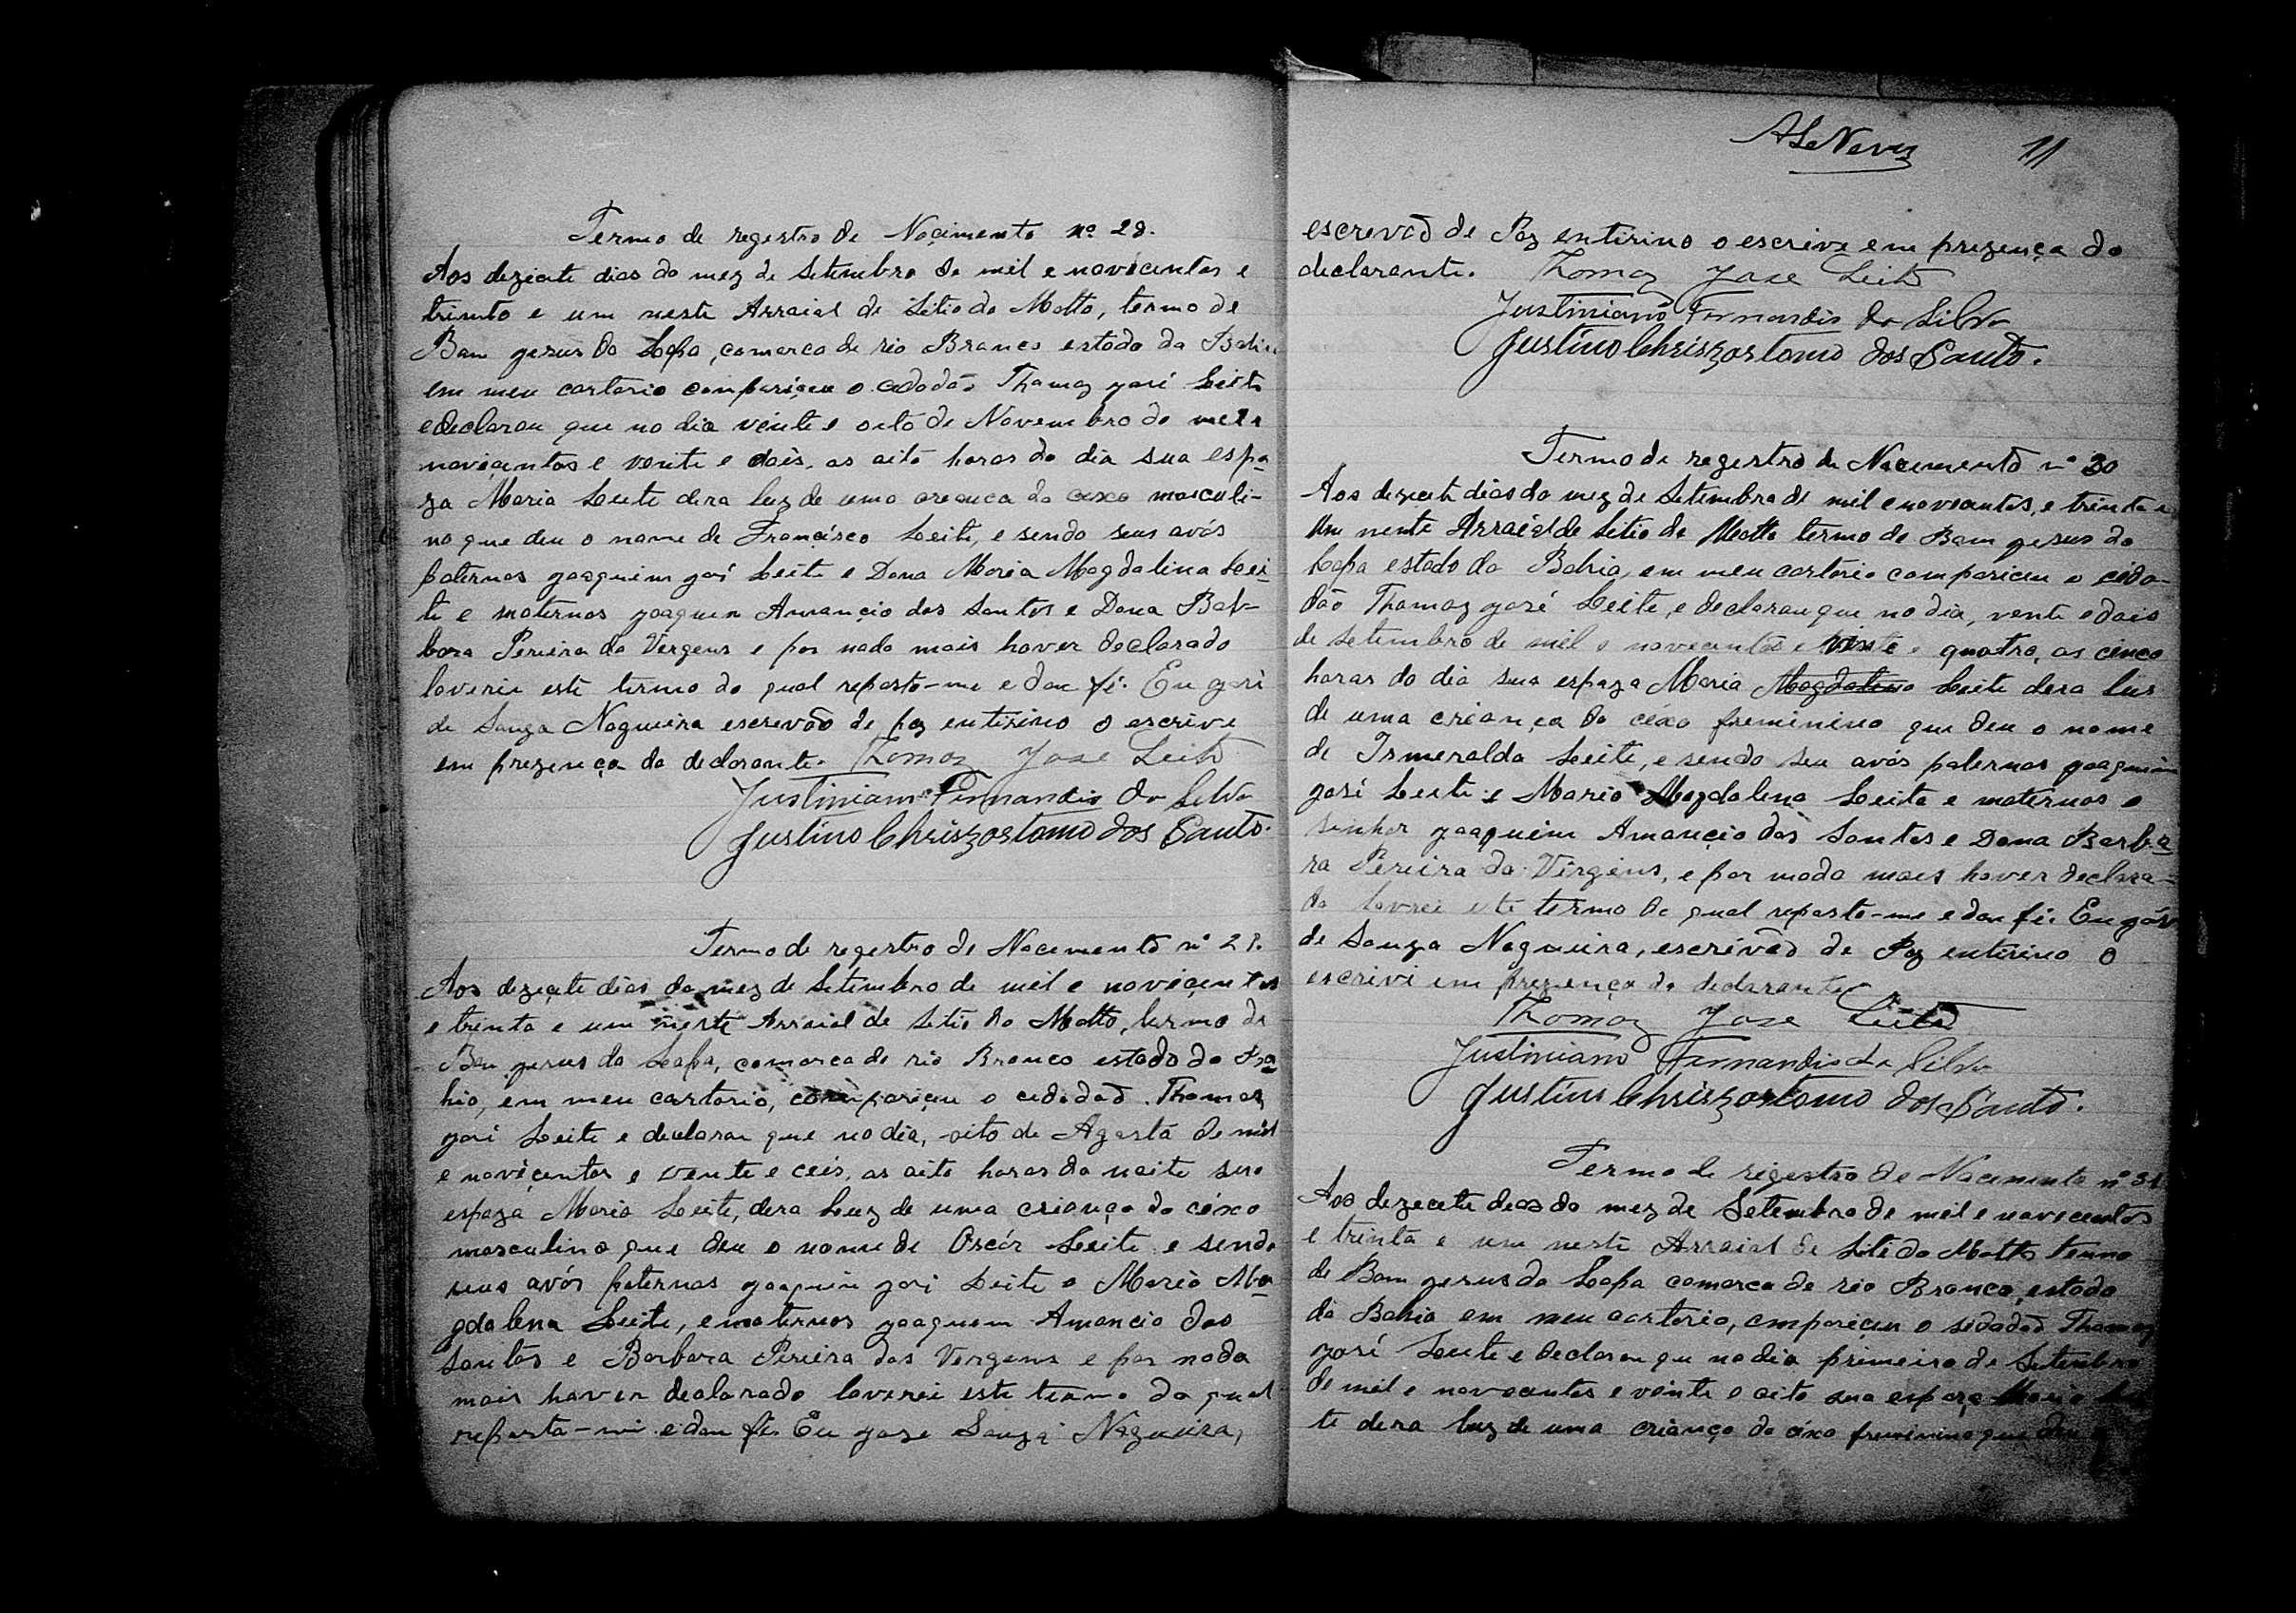 Termo de regestro de Naçimento nº 28.
Aos dezeçete dias do mez de Setembro de mil e noviçentos e
trinta e um neste Arraial de Sitio do Matto, termo de
Bam gezus da Lapa, comarca de rio Branco estado da Bahia
em meu cartorio compariçeu o cidadão Thomaz gozé Leite
e declarou que no dia vinte e oito de Novembro de mil e
noviçentos e vente e dois, as oito horas do dia sua espo-
za Maria Leite dera luz de uma creança do cexo masculi-
no que deu o nome de Françisco Leite, e sendo seus avós
paternos goaquim gozé Leite e Dona Maria Magdalina Lei-
te e maternos goaquim Amançio dos Santos e Dona Bar-
bara Pereira da Vergens e por nada mais haver declarado
laverei este termo do qual reporto-me e dou fé. Eu gozé
de Souza Nogueira escrevão de paz entirino o escrive
em prezença do declarante. Thomaz Jose Leite
Justiniano Fernandis da Silva
Justino Chriszostomo dos Santo.
Termo de registro de Nacimento nº 29.
Aos dezeçete dias do mez de Setembro de mil e noviçentos
e trenta e um neste Arraial de Sitio do Matto, termo de
Bom gezus da Lapa, comarca de rio Branco estado da Ba-
hia, em meu cartorio, compariçeu o cidadão Thomaz
gozé Leite e declarou que no dia, oito de Agosto de mil
e noviçentos e vente e ceis, as oito horas da noite sua
espoza Maria Leite, dera luz de uma criança do céxo
masculino que deu o nome de Oscár Leite e sendo
seus avós paternos goaquim gozé Leite e Maria Ma-
gdalena Leite, e maternos goaquim Amancio dos
Santos e Barbara Pereira das Vergens e por nada
mais haver declarado laverei este termo do qual
reporto-me e dou fé. Eu goze Souza Nogueira,
ALeNeves 11
escrevão de Paz entirino o escrive em prezença do
declarante. Thomaz Jose Leite
Justiniano Fernandis da Silva
Justino Chriszostomo dos Santo.
Termo de regestro de Nacemento nº 30
Aos dezecete dias do mez de Setembro de mil e novecentos, e trinta e
um neste Arraial de Sitio do Matto termo de Bam gezus da
Lapa estado da Bahia, em meu cartorio compariceu o cida-
dão Thomaz gozé Leite, e declarou que no dia, vente e dois
de setembro de mil e novecentos e vinte e quatro, as cinco
horas do dia sua espoza Maria Magdalena Leite dera lus
de uma criança do céxo freminino que deu o nome
de Ismeralda Leite, e sendo seu avós paternos goaquim
gozé Leite e Maria Magdalena Leite e maternos o
senhor goaquim Amançio dos Santos e Dona Barba-
ra Pereira da Virgens, e por nada mais haver declara-
do lavrei este termo do qual reporto-me e dou fé. Eu gozé
de Souza Nogueira, escrivão de Paz entirino o
escrivi em prezença do declarante
Thomaz Jose Leite
Justiniano Fernandis da Silva
Justino Chriszostomo dos Santo.
Termo de regestro de Nacimento nº 31
Aos dezecete dias do mez de Setembro de mil e novecentos
e trinta e um neste Arraial de Sitio do Matto termo
de Bam gezus da Lapa comarca de rio Branco, estado
da Bahia em meu cartorio, compariçeu o sidadão Thomaz
gozé Leite e declarou qu no dia primeiro de Setembro
de mil e novecentos e vinte e oito sua espoza Maria Lei-
te dera luz de uma criança do céxo freminino que deu